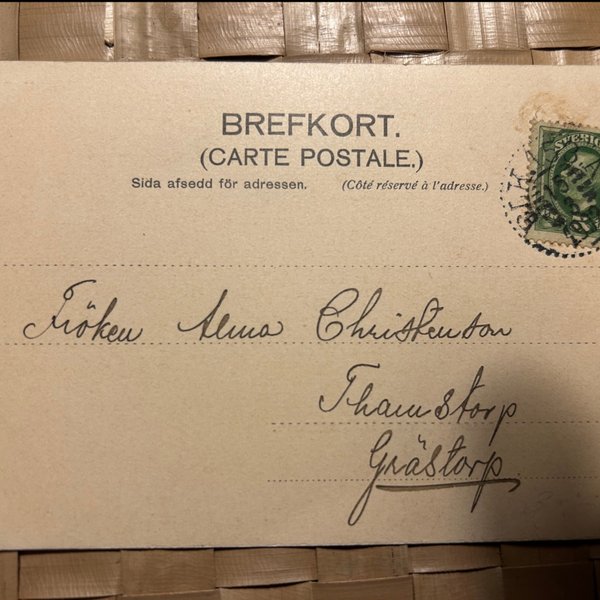 BREFKORT.
(CARTE POSTALE.)
Sida afsedd för adressen. (Côté réservé à l'adresse.)
SVERIGE
Fröken Alma Christenson
Thamstorp
Grästorp